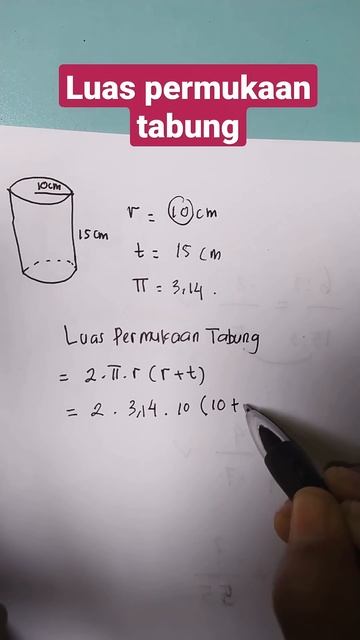 Luas permukaan
tabung
10cm
15 cm
r = 10 cm
t = 15 cm
π = 3,14 .
Luas Permukaan Tabung
= 2 . π . r ( r + t )
= 2 . 3,14 . 10 ( 10 +